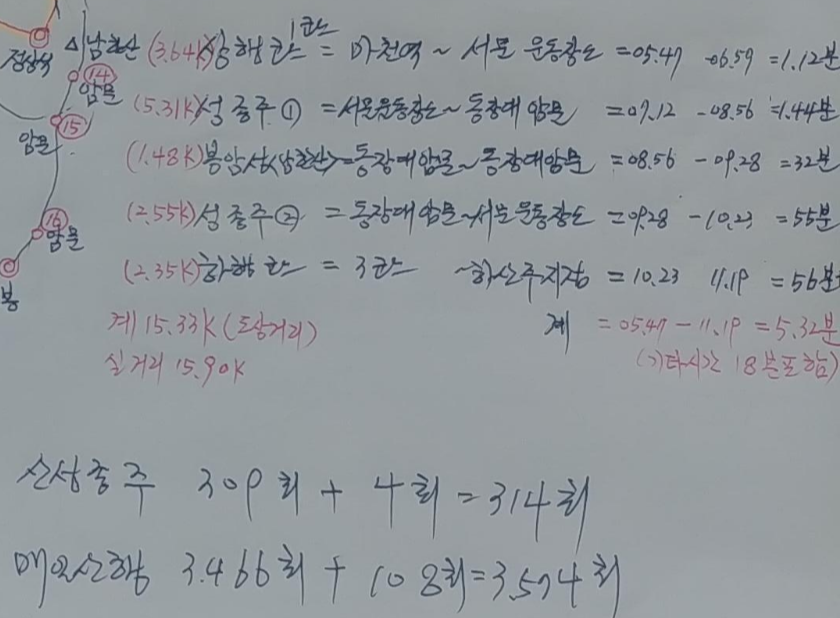 1코스
정상석 △남한산 (3.64K)상행코스 = 마천역 ~ 서문 운동장도 = 05.47 - 06.59 = 1.12분
⑭
암문
(5.31K)성종주① = 서문운동장도 ~ 동장대암문 = 07.12 - 08.56 = 1.44분
⑮
암문
(1.48K)봉암성(남한산) = 동장대암문 ~ 동장대암문 = 08.56 - 09.28 = 32분
⑯
암문
(2.55K)성종주② = 동장대암문 ~ 서문운동장도 = 09.28 - 10.23 = 55분
(2.35K)하행코스 = 3코스 ~ 하산주지점 = 10.23 11.19 = 56분
봉
계 15.33K (도상거리) 계 = 05.47 - 11.19 = 5.32분
실거리 15.90K (기타시간 18분포함)
산성종주 309회 + 4회 = 314회
매요산행 3.466회 + 108회 = 3.574회